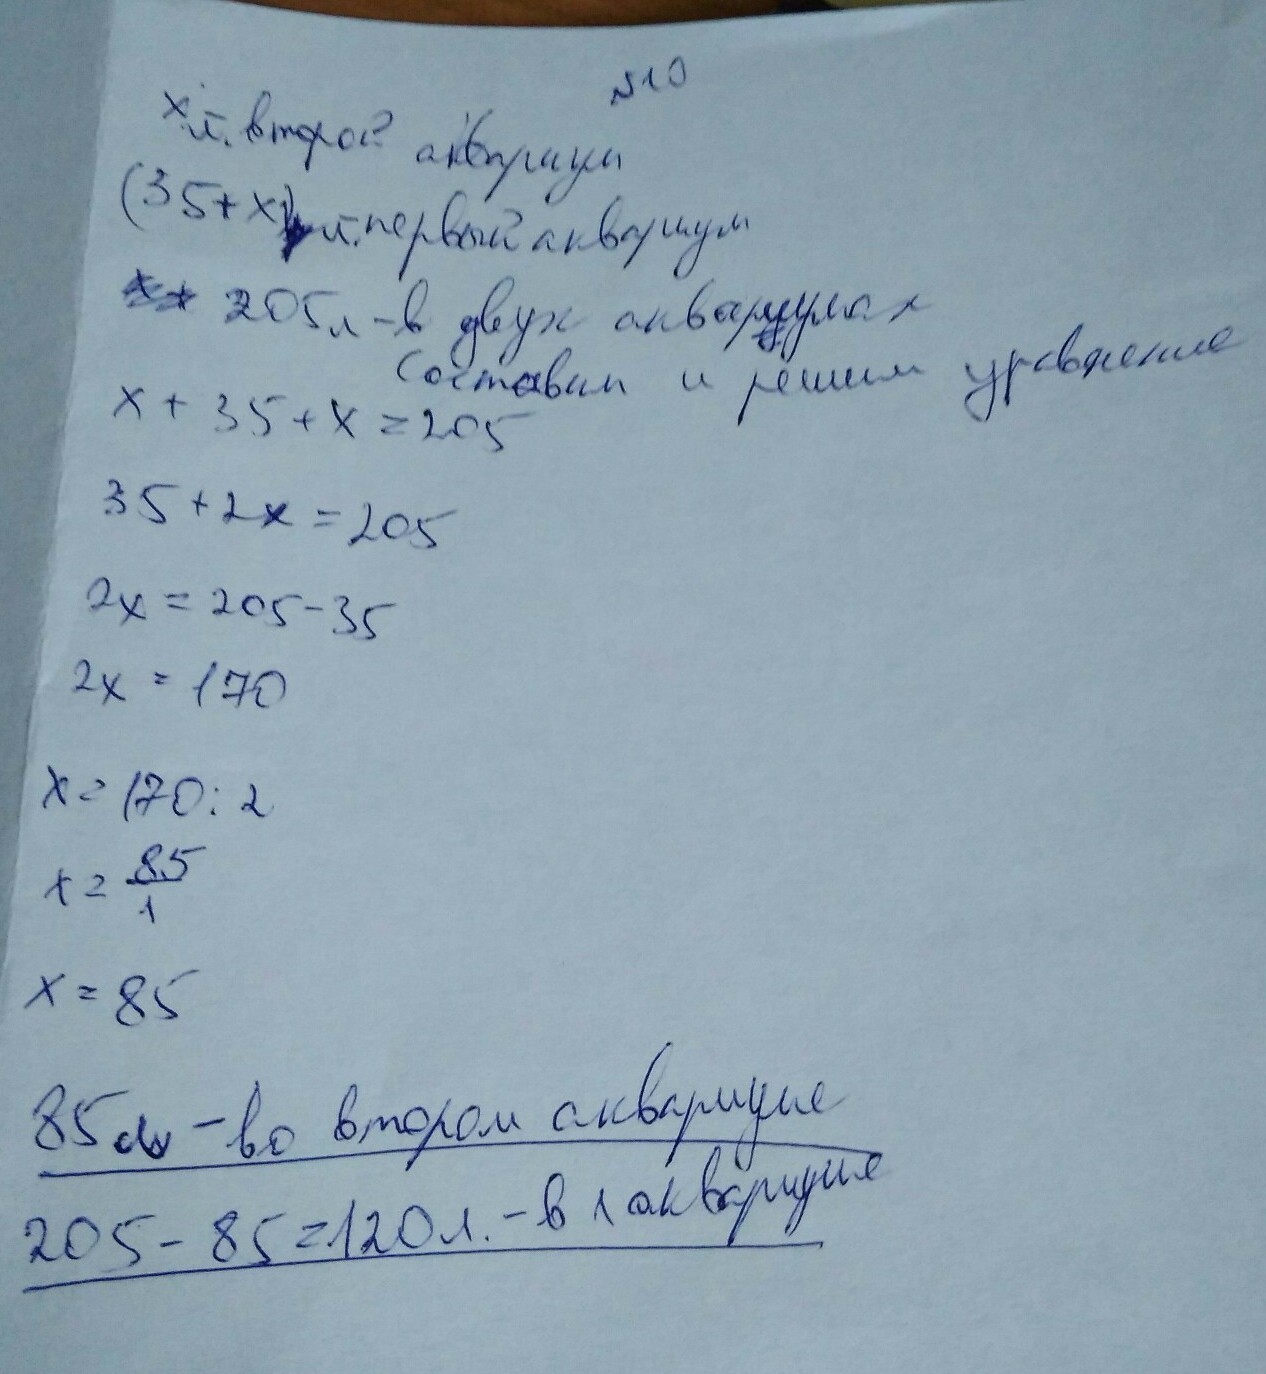 №10
x л. второй аквариум
(35+x) л. первый аквариум
205л - в двух аквариумах
Составим и решим уравнение
x + 35 + x = 205
35 + 2x = 205
2x = 205 - 35
2x = 170
x = 170 : 2
x = 85/1
x = 85
85л - во втором аквариуме
205 - 85 = 120л. - в 1 аквариуме